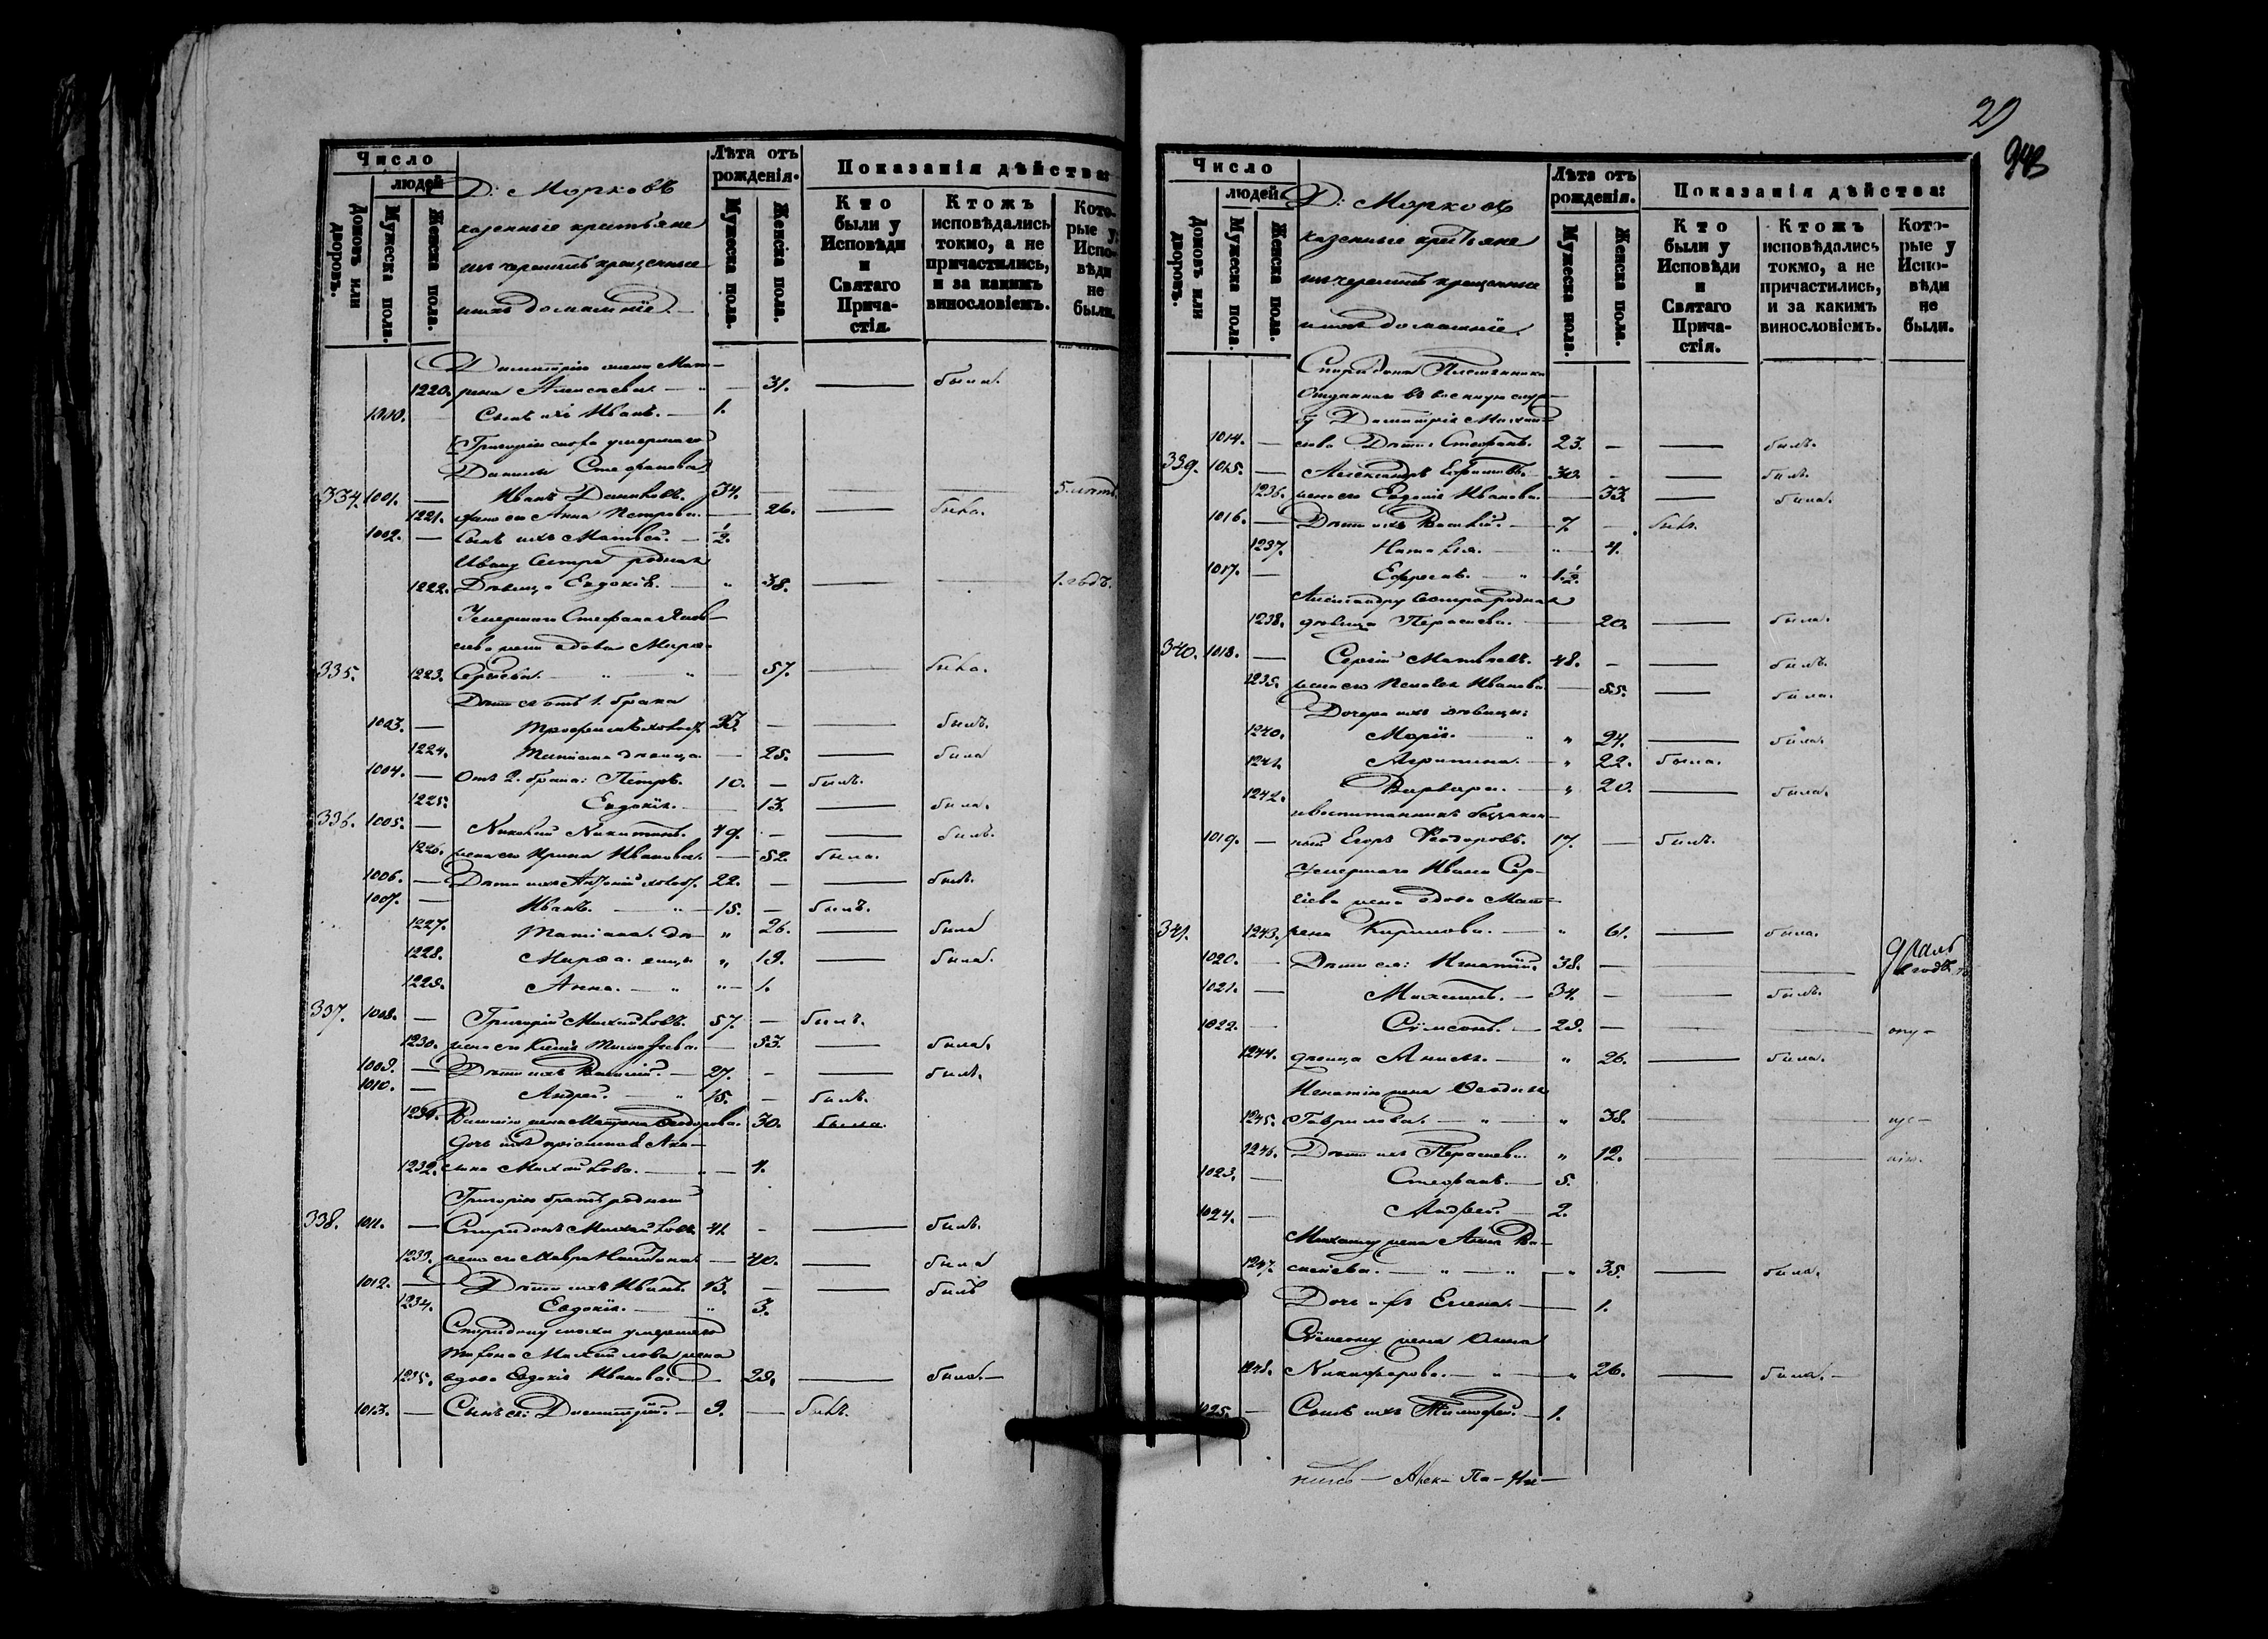 Число
людей
Домовъ или дворовъ.
Мужеска пола.
Женска пола.
Д: Морковъ
казенные крестьяне
изъ черемисъ крещенные
и ихъ домашніе.
Лѣта отъ рожденія.
Мужеска пола.
Женска пола.
Показанія дѣйства:
Кто были у Исповѣди и Святаго Причастія.
Ктожъ исповѣдались токмо, а не причастились, и за какимъ винословіемъ.
Которые у Исповѣди не были.
Димитрія жена Мат-
1220. рена Алексѣева. — 31. — была.
1000. Сынъ ихъ Иванъ. — 1.
Григорія умершаго
Данилы Стефанова
334. 1001. — Иванъ Даниловъ. 34. — 5. лѣтъ.
1221. жена его Анна Петрова. — 26. — была.
1002. — Сынъ ихъ Матвѣй. — 1/2.
Ивану сестра родная
1222. Дѣвица Евдокія. — " 38. — 1. годъ.
Умершаго Стефана Яков-
лева жена вдова Марѳа
335. 1223. Сергѣева. — " — " — 57. — была.
Дѣти ея отъ 1. брака
1003. — Трофимъ холос. 23. — былъ.
1224. Татіана дѣвица — 25. — была
1004. — Отъ 2. брака: Петръ. 10. — былъ.
1225. Евдокія. — 13. — была.
336. 1005. — Николай Никитинъ. 49. — былъ.
1226. жена его Ирина Иванова. — 52. была.
1006. — Дѣти ихъ холос. 22. — былъ.
1007. — Иванъ. — " — 15. — былъ.
1227. Татіана дѣ- " 26. — была
1228. Марѳа. вицы " 19. — была.
1229. Анна. — " "— 1.
337. 1008. — Григорій Михайловъ. 57. — былъ.
1230. жена его Тимофеева. — 53. — была.
1009. — Дѣти ихъ Василій. — 27. — былъ.
1010. — Андрей. — " 15. — былъ.
1231. Василію жена Матрона Ѳеодорова. 30. была.
Дочь ихъ пріемная Аку-
1232. лина Михайлова. — " — 4.
Григорію братъ родный
338. 1011. — Спиридонъ Михайловъ 41. — былъ.
1233. жена его Мавра — 40. — была
1012. — Дѣти ихъ Иванъ. 13. — былъ
1234. Евдокія. — " 3.
Спиридону умершаго
Михайлова жена
1235. вдова Евдокія Иванова. — 29. — была. —
1013. — Сынъ ея: Димитрій. — 9. — былъ.
29
943
Число
людей
Домовъ или дворовъ.
Мужеска пола.
Женска пола.
Д: Морковъ
казенные крестьяне
изъ черемисъ крещенные
и ихъ домашніе.
Лѣта отъ рожденія.
Мужеска пола.
Женска пола.
Показанія дѣйства:
Кто были у Исповѣди и Святаго Причастія.
Ктожъ исповѣдались токмо, а не причастились, и за какимъ винословіемъ.
Которые у Исповѣди не были.
Спиридона Племянника
Отданнаго въ военную служ-
бу Димитрія Михай-
1014. — лова Дѣти: Стефанъ. 23. — былъ.
339. 1015. — Александръ Ефимовъ. — 30. — былъ.
1236. жена его Евдокія Иванова. — 33. — была.
1016. — Дѣти ихъ Василій. — 7. — былъ.
1237. Наталія. — " — 4.
1017. — Ефремъ. — " 1. 1/2.
Александру сестра родная
1238. дѣвица Парасева. — 20. — была.
340. 1018. — Сергій Матвѣевъ. 48. — былъ.
1239. жена его Иванова. — 55. — была.
Дочери ихъ дѣвицы:
1240. Марія. — " 24. — была.
1241. Агрипина. — " 22. была.
1242. Варвара. — " 20. — была.
и воспитанникъ беззакон-
1019. — ный Егоръ Ѳеодоровъ. 17. — былъ.
Умершаго Ивана Сер-
гіева жена вдова Мат-
341. 1243. рена Кирилова. — " 61. — была.
1020. — Дѣти ея: Игнатій. 38. —
1021. — Михаилъ. — 34. — былъ.
1022. — Сѵмеонъ. — 29. —
1244. дѣвица Анися. — " 26. — была.
Игнатію жена Ѳеодосья
1245. Гаврилова. — " — " 38. —
1246. Дѣти ихъ Парасева. " 12. —
1023. — Стефанъ. — 5.
1024. — Андрей. — 2.
Михаилу жена Анна Ва-
1247. сильева. — " — " — " 35. — была.
Дочь ихъ Елена. — 1.
Сѵмеону жена Анна
1248. Никифорова. — " — " 26. — была. —
1025. — Сынъ ихъ Тимофей. — 1.